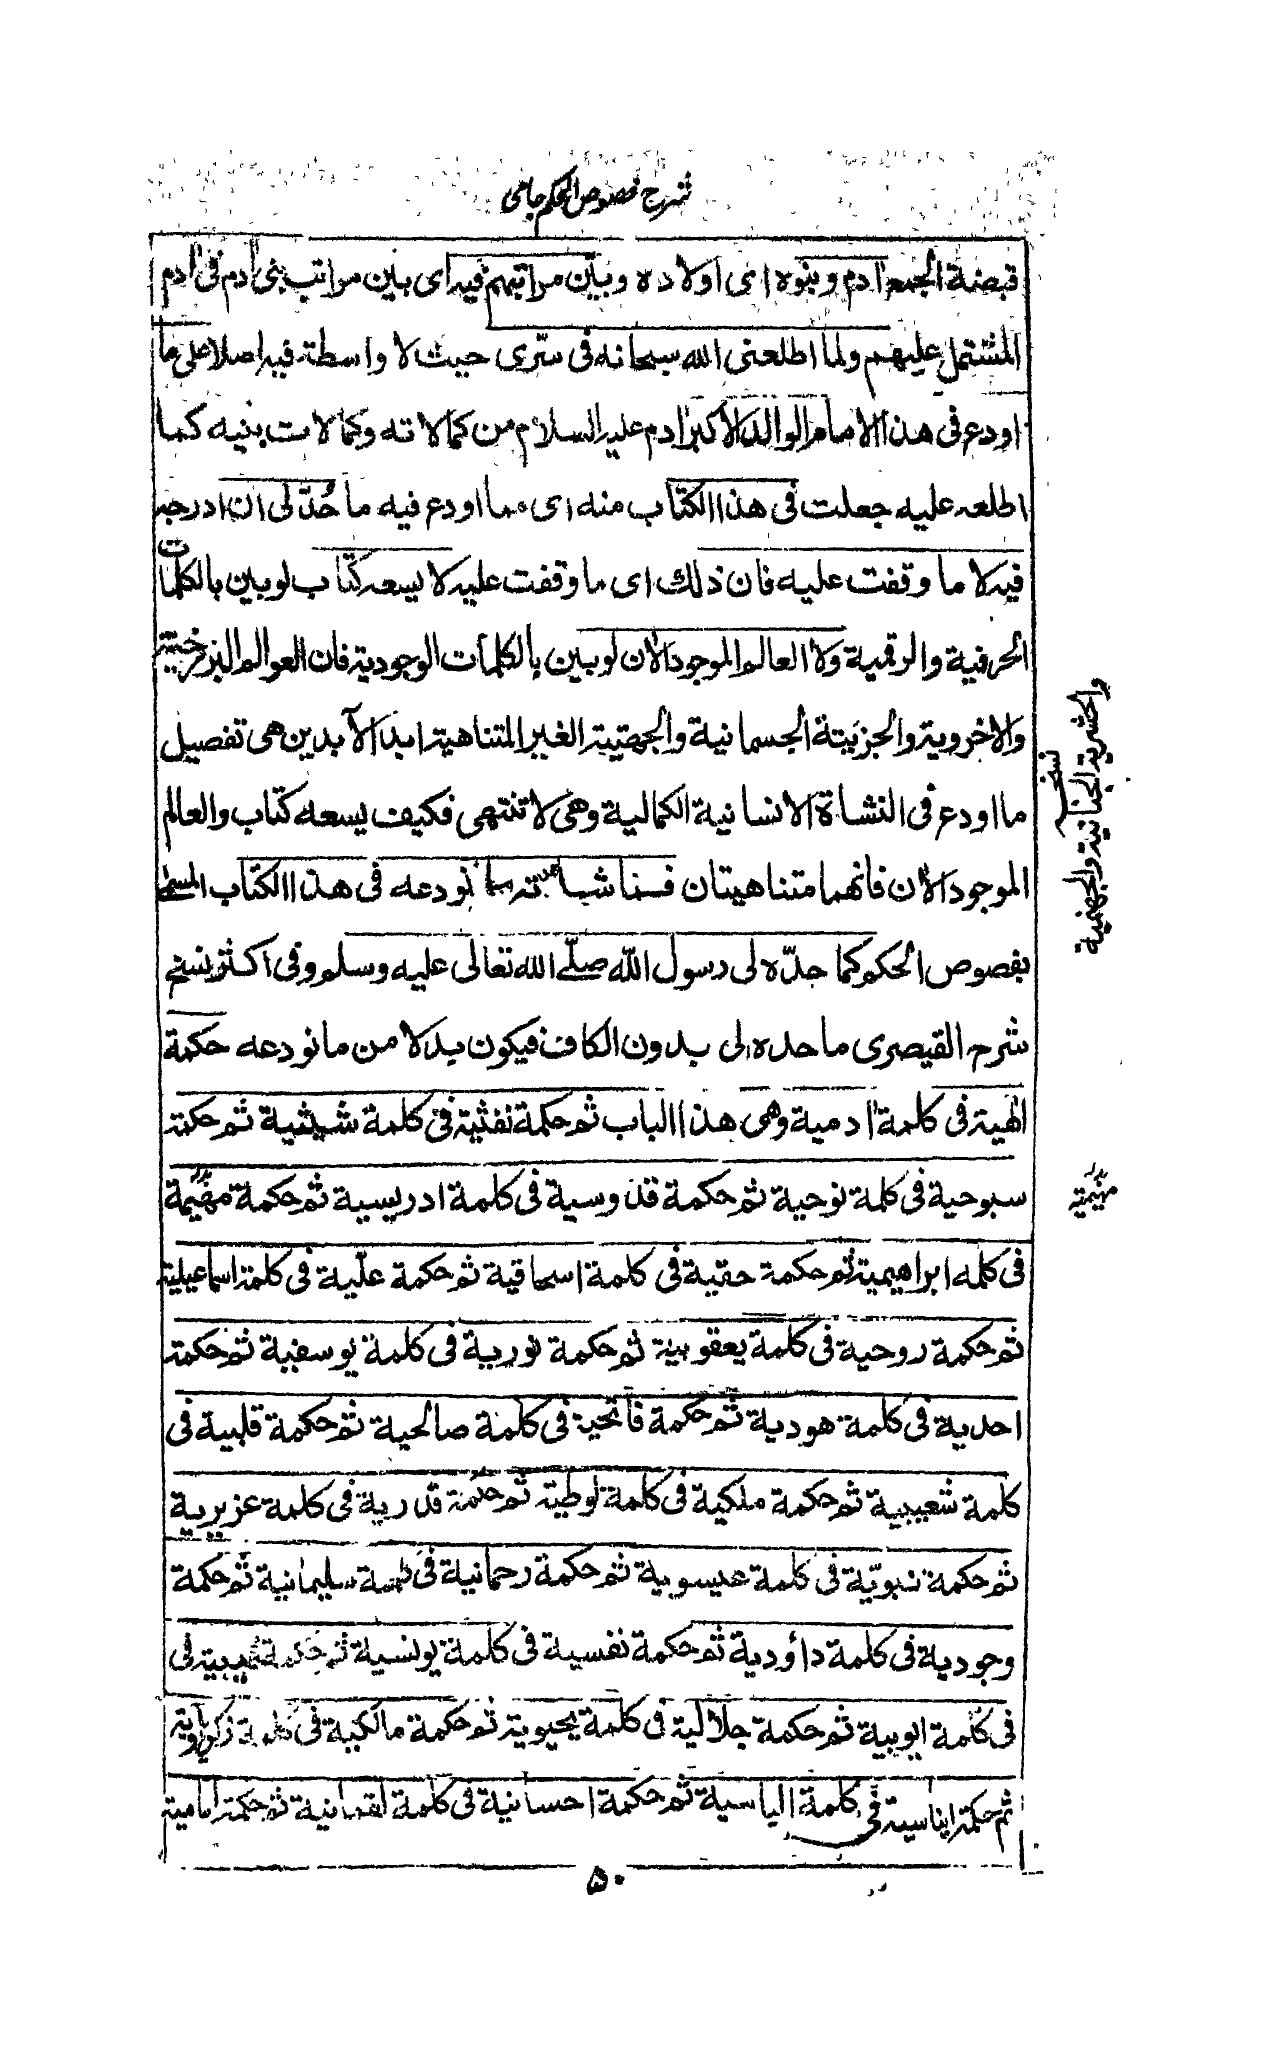 شرح فصوص الحكم جامى
قبضة الجمع ادم وبنوه اى اولاده وبيّن مراتبهم فيه اى بين مراتب بنى ادم فى ادم
المشتمل عليهم ولما اطلعنى الله سبحانه فى سرّى حيث لا واسطة فيه اصلا على ما
اودع فى هذا الامام الوالد الاكبر ادم عليه السلام من كمالاته وكمالات بنيه كما
اطلعه عليه جعلت فى هذا الكتاب منه اى مما اودع فيه ما حُدّ لى ان ادرجه
فيه لا ما وقفت عليه فان ذلك اى ما وقفت عليه لا يسعه كتاب لو بين بالكلمات
الحرفية والرقمية ولا العالم الموجود الان لو بين بالكلمات الوجودية فان العوالم البرزخية
والاخروية والجزئية الجسمانية والجهتية الغير المتناهية ابد الآبدين هى تفصيل
ما اودع فى النشاة الانسانية الكمالية وهى لا تنتهى فكيف يسعه كتاب والعالم
الموجود الان فانهما متناهيتان فمما شهدته مما نودعه فى هذا الكتاب المسمى
بفصوص الحكم كما حدّه لى رسول الله صلّے الله تعالى عليه وسلم وفى اكثر نسخ
شرح القيصرى ما حده لى بدون الكاف فيكون بدلا من ما نودعه حكمة
الهية فى كلمة ادمية وهى هذا الباب ثم حكمة نفثية فى كلمة شيثية ثم حكمة
سبوحية فى كلمة نوحية ثم حكمة قدوسية فى كلمة ادريسية ثم حكمة مهيمة
فى كلمه ابراهيمية ثم حكمة حقية فى كلمة اسحاقية ثم حكمة عليّة فى كلمة اسماعيلية
ثم حكمة روحية فى كلمة يعقوبية ثم حكمة نورية فى كلمة يوسفية ثم حكمة
احدية فى كلمة هودية ثم حكمة فاتحية فى كلمة صالحية ثم حكمة قلبية فى
كلمة شعيبية ثم حكمة ملكية فى كلمة لوطية ثم حكمة قدرية فى كلمة عزيرية
ثم حكمة نبويّة فى كلمة عيسوية ثم حكمة رحمانية فى كلمة سليمانية ثم حكمة
وجودية فى كلمة داؤدية ثم حكمة نفسية فى كلمة يونسية ثم حكمة غيبية فى
فى كلمة ايوبية ثم حكمة جلالية فى كلمة يحيوية ثم حكمة مالكية فى كلمة زكرياوية
ثم حكمة ايناسية فى كلمة الياسية ثم حكمة احسانية فى كلمة لقمانية ثم حكمة امامية
والحشرية الجنانية والجهنمية
نسخه
مهيمية
۵۰